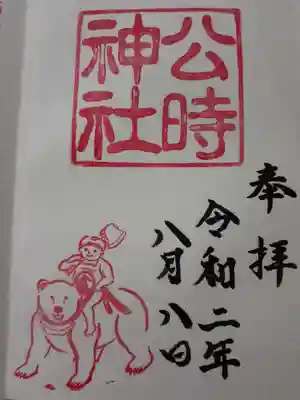 公時
神社
奉拝
令和二年
八月八日